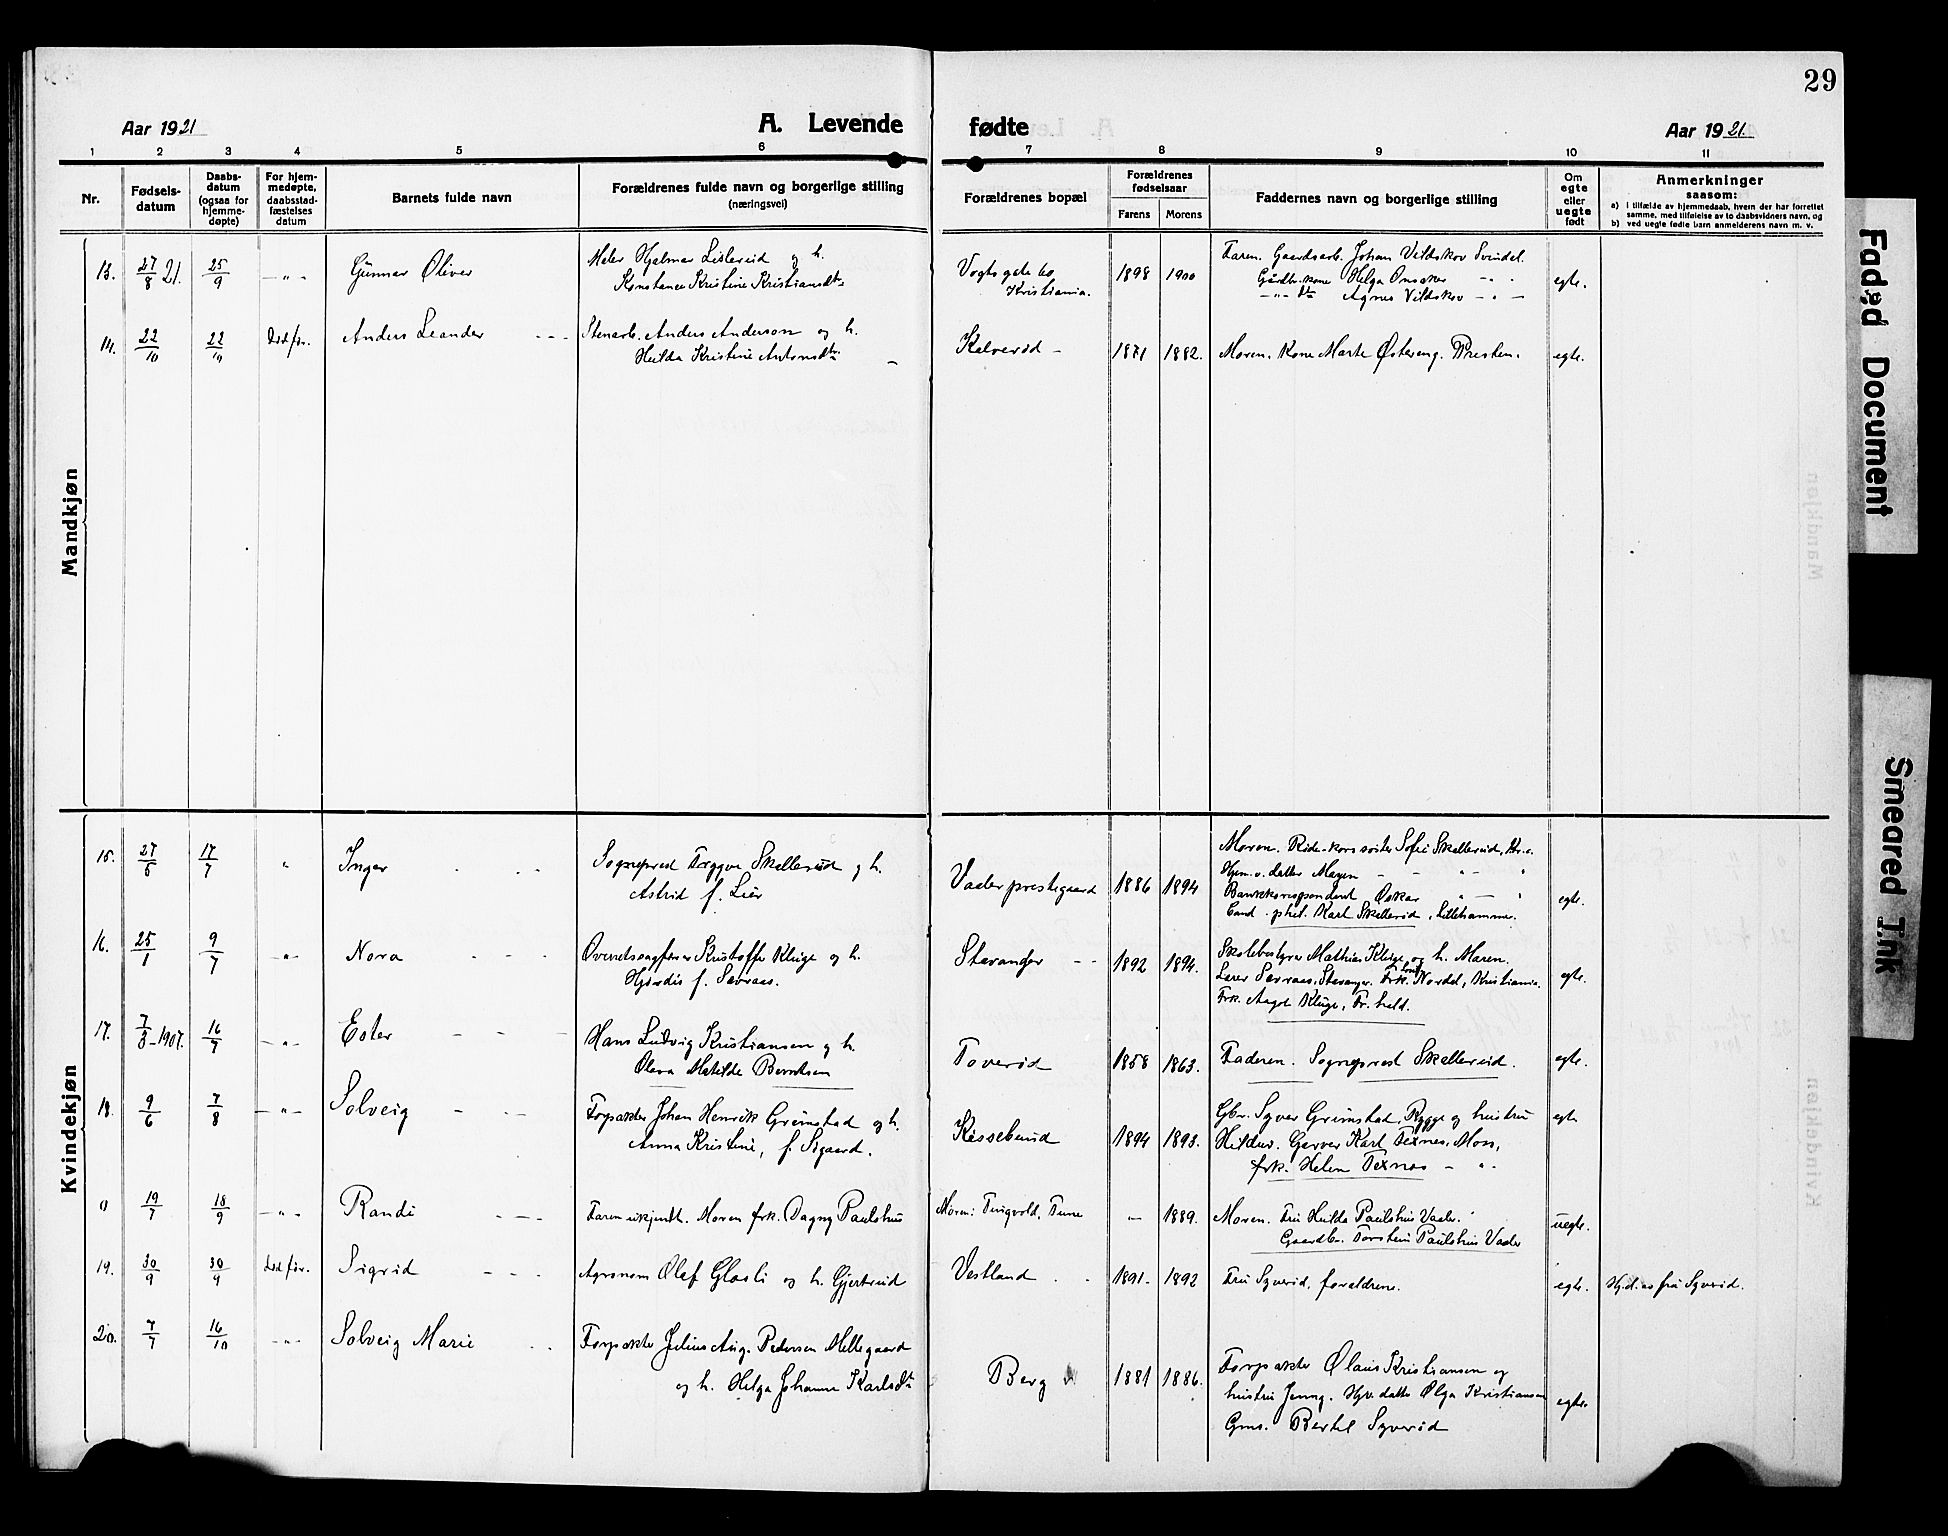 29
Aar 1921
A. Levende
fødte
Aar 1921.
1 2 3 4 5 6 7 8 9 10 11
Nr.
Fødsels-
datum
Daabs-
datum
(ogsaa for
hjemme-
døpte)
For hjem-
medøpte,
daabsstad-
fæstelses
datum
Barnets fulde navn
Forældrenes fulde navn og borgerlige stilling
(næringsvei)
Forældrenes bopæl
Forældrenes
fødselsaar
Farens
Morens
Faddernes navn og borgerlige stilling
Om
egte
eller
uegte
født
Anmerkninger
saasom:
a) i tilfælde av hjemmedaab, hvem der har forrettet
samme, med tilføielse av to daabsvidners navn, og
b) ved uegte fødte barn anmelderens navn m. v.
Mandkjøn
13. 27/8 21. 25/9 -„- Gunnar Oliver
Hjalmar Lislerud og h.
Konstance Kristine Kristiansdtr
Vogtsgate 60
Kristiania.
1898 1900
Faren. Gaardsarb. Johan Vildskov Svindal.
Gårdbr.kone Helga Onsaker -„-
-„- dtr Agnes Vildskov -„-
egte.
14. 22/10 22/10 Død før. Anders Leander
Stenarb. Anders Anderson og h.
Hulda Kristine Antonsdtr.
Kalverød
1871 1882.
Moren. Kone Marte Østereng. Presten.
egte.
Kvindekjøn
15. 27/5 17/7 „ Inger
Sogneprest Tryggve Skellerud og h.
Astrid f. Lier
Vaaler prestegaard
1886 1894
Moren. Røde-korssøster Sofie Skellerud, Kr.a.
Hjem.v. datter Maren -„-
Bankkorrespondent Oskar -„-
Cand. phil. Karl Skellerud, Lillehammer.
egte.
16. 25/1 9/7 -„- Nora
Overretssagfører Kristoffer Kluge og h.
Hjørdis f. Sævraas.
Stavanger
1892 1894.
Skolebestyrer Mathias Kluge og h. Maren.
Lærer Sævraas, Stavanger. Frk. Nordal, Kristiania.
Frk. Aagot Kluge, Fr.hald.
egte.
17. 7/3-1907. 16/7 -„- Ester
Hans Ludvig Kristiansen og h.
Olava Matilde Berntsen
Toverød
1858 1863.
Faderen. Sogneprest Skellerud.
egte.
18. 9/6 7/8 -„- Solveig
Forpakter Johan Henrik Grimstad og h.
Anna Kristine, f. Sigaard.
Kissebund
1894 1893.
Gbr. Syver Grimstad, Rygge og hustru
Hildur. Garver Karl Texnes, Moss,
frk. Helen Texnes -„-
egte
19/7 18/9 -„- Randi
Faren ukjendt. Moren frk. Dagny Paulshus
Moren: Tingvold, Tune
— 1889.
Moren. Fru Hulda Paulshus Vaaler.
Gaardbr. Torstein Paulshus Vaaler
uegte.
19. 30/9 30/9 Død før. Sigrid
Agronom Olaf Glosli og h. Gjertrud
Vestland
1891- 1892
Fru Syverød, forældrene.
egte. Hj.d. av fru Syverød.
20. 7/7 16/10 -„- Solveig Marie
Forpakter Julius Aug. Pedersen Mellegaard
og h. Helga Johanne Karlsdtr
Berg
1881 1886.
Forpakter Olaus Kristiansen og
hustru Jenny. Hjv. datter Olga Kristiansen
Gms. Bertel Syverød
egte.
Faded Document
Smeared Ink